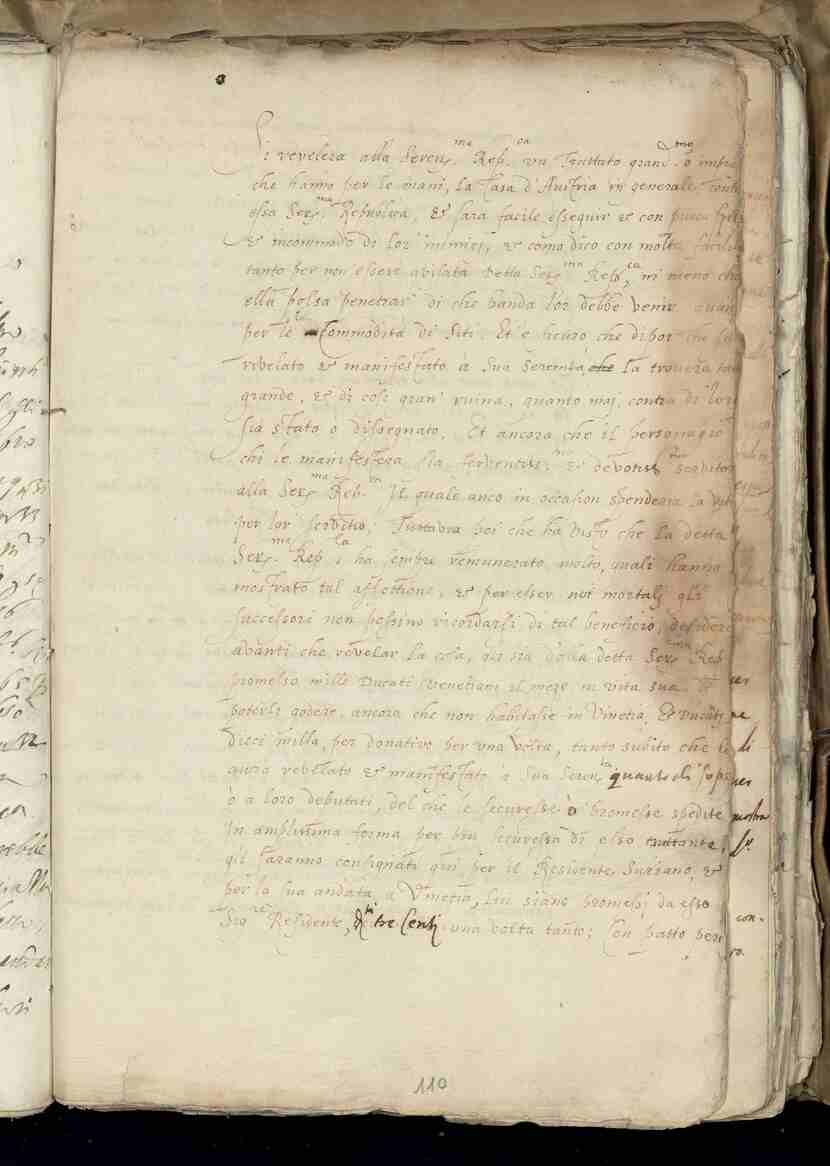 Si revelera alla Seren.ma Rep.ca un Trattato grand.mo o impre
che hanno per le mani, la Casa d'Austria in generale, contr
essa Ser.ma Republica, et sara facile esseguir et con puoca spesa
et incommodo di lor nimici, et como dico con molta facili
tanto per non essere avisata detta Ser.ma Rep.ca, ni meno che
ella possa penetrar di che banda lor debbe venir quan
per le Commodità di Siti. Et è sicuro che dipoi che sa
rivelato et manifestato à sua Serenità che la trovera tan
grande, et di cosi gran ruina, quanto mai contra di lor
sia stato o dissegnato. Et ancora che il personagio
chi le manifestera sia et devotiss.mo servitor
alla Ser.ma Rep.ca Il quale anco in occasion spenderia la vita
per lor servitio; Tuttavia poi che ha visto che la detta
Ser.ma Rep.ca ha sempre remunerato molto, quali hanno
mostrato tal affettione, et per esser noi mortali gli
successori non possino ricordarsi di tal beneficio, desidera
avanti che revelar la cosa, gli sia dalla detta Ser.ma Rep
promesso mille Ducati Venetiani il mese in vita sua
poterli godere, ancora che non habitasse in Vinetia, Et Ducati
Dieci milla, per donativo per una volta, tanto subito che
gura revelato et manifestato a Sua Seren.ta quanto di sopr
ò a loro deputati, del che le secureze ò promesse spedite
In amplissima forma per piu secureza di esso trattante,
gli saranno consignati qui per il Residente Suriano, et
per la sua andata a Vinetia, liu siano promessi da esso
Sig.re Residente, D.ti tre Centi una volta tanto; Con patto pero
110